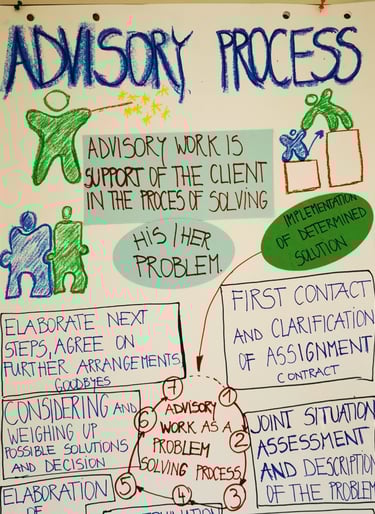 ADVISORY PROCESS
ADVISORY WORK IS
SUPPORT OF THE CLIENT
IN THE PROCES OF SOLVING
HIS/HER
PROBLEM.
IMPLEMENTATION
OF DETERMINED
SOLUTION
FIRST CONTACT
AND CLARIFICATION
OF ASSIGNMENT
CONTRACT
ELABORATE NEXT
STEPS, AGREE ON
FURTHER ARRANGEMENTS
GOODBYES
CONSIDERING AND
WEIGHING UP
POSSIBLE SOLUTIONS
AND DECISION
ELABORATION
OF
7
1
6
2
5
3
4
ADVISORY
WORK AS A
PROBLEM
SOLVING PROCESS
JOINT SITUATION
ASSESSMENT
AND DESCRIPTION
OF THE PROBLEM